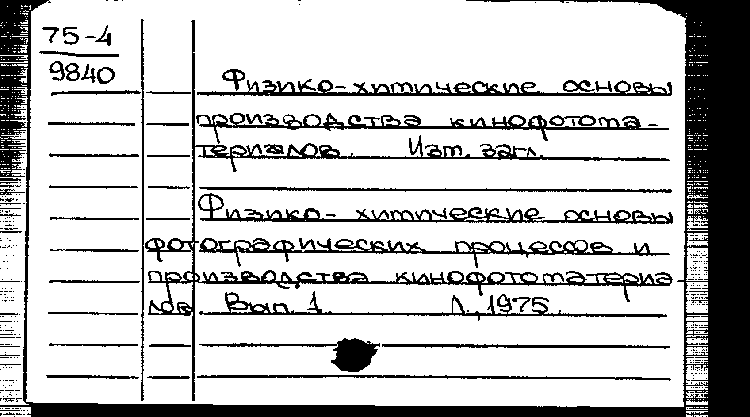 75-4
9840
Физико-химические основы
производства кинофотома-
териалов. Изм. загл.
Физико-химические основы
фотографических процессов и
производства кинофотоматериа-
лов. Вып. 1. Л., 1975.